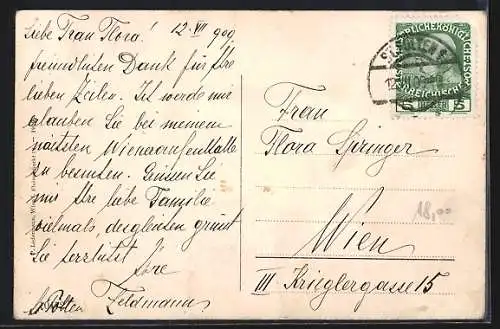 Liebe Frau Flora! 12. VII 909
freundlichsten Dank für Ihre
lieben Zeilen. Ich werde mir
erlauben Sie bei meinem
nächsten Wieneraufenthalte
zu besuchen. Grüssen Sie
mir Ihre liebe Familie
vielmals, desgleichen grüsst
Sie herzlichst
Ihre
St. Pölten Feldmann
Frau
Flora Springer
Wien
III Krieglergasse 15
18,00
ST. PÖLTEN
5 HELLER 5